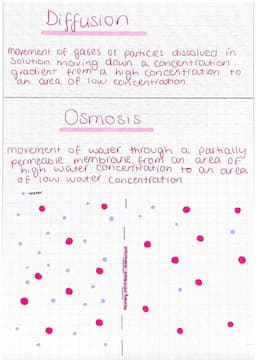 Diffusion
movement of gases or particles dissolved in
solution moving down a concentration
gradient from a high concentration to
an area of low concentration
Osmosis
movement of water through a partially
permeable membrane, from an area of
high water concentration to an area
of low water concentration
water